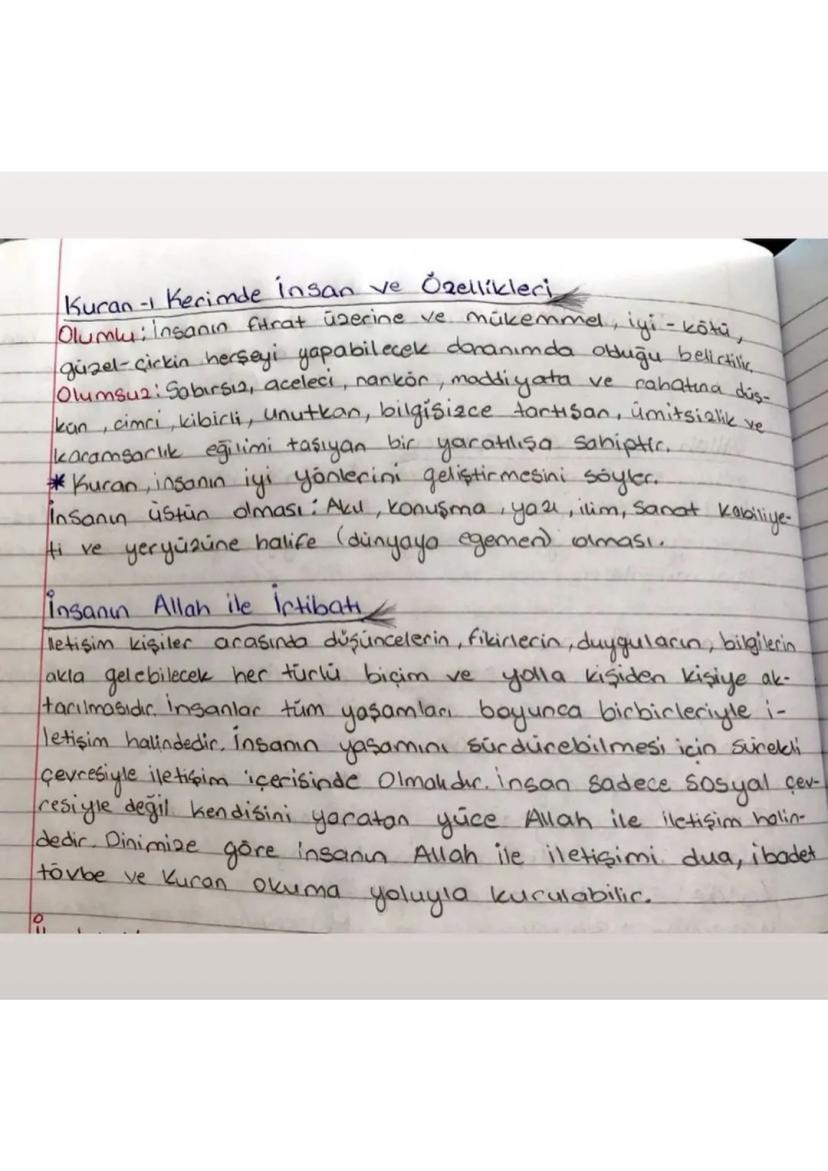 Kuran-ı Kerimde İnsan ve Özellikleri
Olumlu: İnsanın fıtrat üzerine ve mükemmel, iyi-kötü,
güzel-çirkin herşeyi yapabilecek donanımda olduğu belirtilir.
Olumsuz: Sabırsız, aceleci, nankör, maddiyata ve rahatına düş-
kün, cimri, kibirli, unutkan, bilgisizce tartışan, ümitsizlik ve
karamsarlık eğilimi taşıyan bir yaratılışa sahiptir.
* Kuran, insanın iyi yönlerini geliştirmesini söyler.
İnsanın üstün olması: Akıl, konuşma, yazı, ilim, sanat kabiliye-
ti ve yeryüzüne halife (dünyaya egemen) olması.
İnsanın Allah ile İrtibatı
İletişim kişiler arasında düşüncelerin, fikirlerin, duyguların, bilgilerin
akla gelebilecek her türlü biçim ve yolla kişiden kişiye ak-
tarılmasıdır. İnsanlar tüm yaşamları boyunca birbirleriyle i-
letişim halindedir. İnsanın yaşamını sürdürebilmesi için sürekli
çevresiyle iletişim içerisinde olmalıdır. İnsan sadece sosyal çev-
resiyle değil kendisini yaratan yüce Allah ile iletişim halin-
dedir. Dinimize göre insanın Allah ile iletişimi dua, ibadet
tövbe ve Kuran okuma yoluyla kurulabilir.